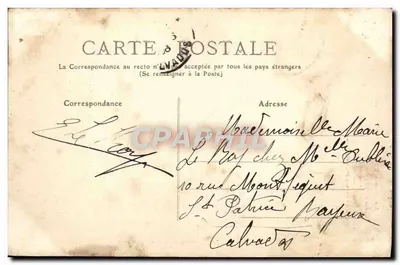 CARTE POSTALE
La Correspondance au recto n'est acceptée par tous les pays étrangers
(Se renseigner à la Poste)
Correspondance
Adresse
CALVADOS
CPAPHIL
E Le Roy
Mademoiselle Marie
Le Roy chez Mlle
10 rue Mont
St Patrice Bayeux
Calvados